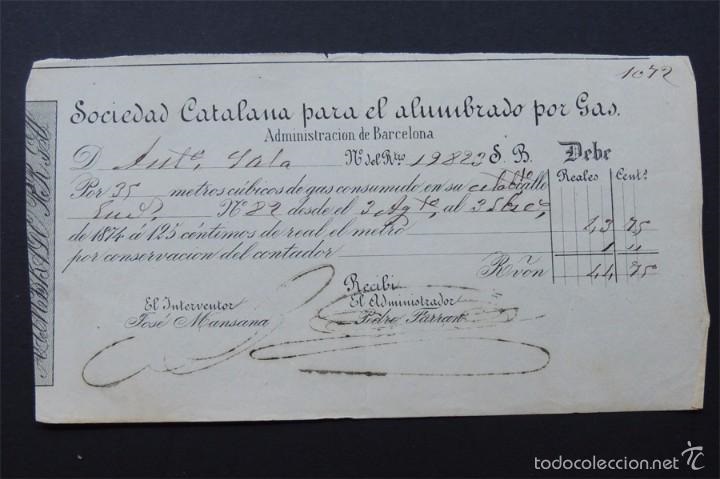 1072
Sociedad Catalana para el alumbrado por Gas.
Administracion de Barcelona
D Antº Sala Nº del Rtro 19823 S. B. Debe
Reales Centˢ
Por 35 metros cúbicos de gas consumido en su calle
Nº 82 desde el 3 Agtº al 3
de 1874 á 125 céntimos de real el metro 43 75
por conservacion del contador 1 "
Rˢ von 44 75
Recibi
El Interventor El Administrador
José Mansana Pedro Farran
todocoleccion.net
tc